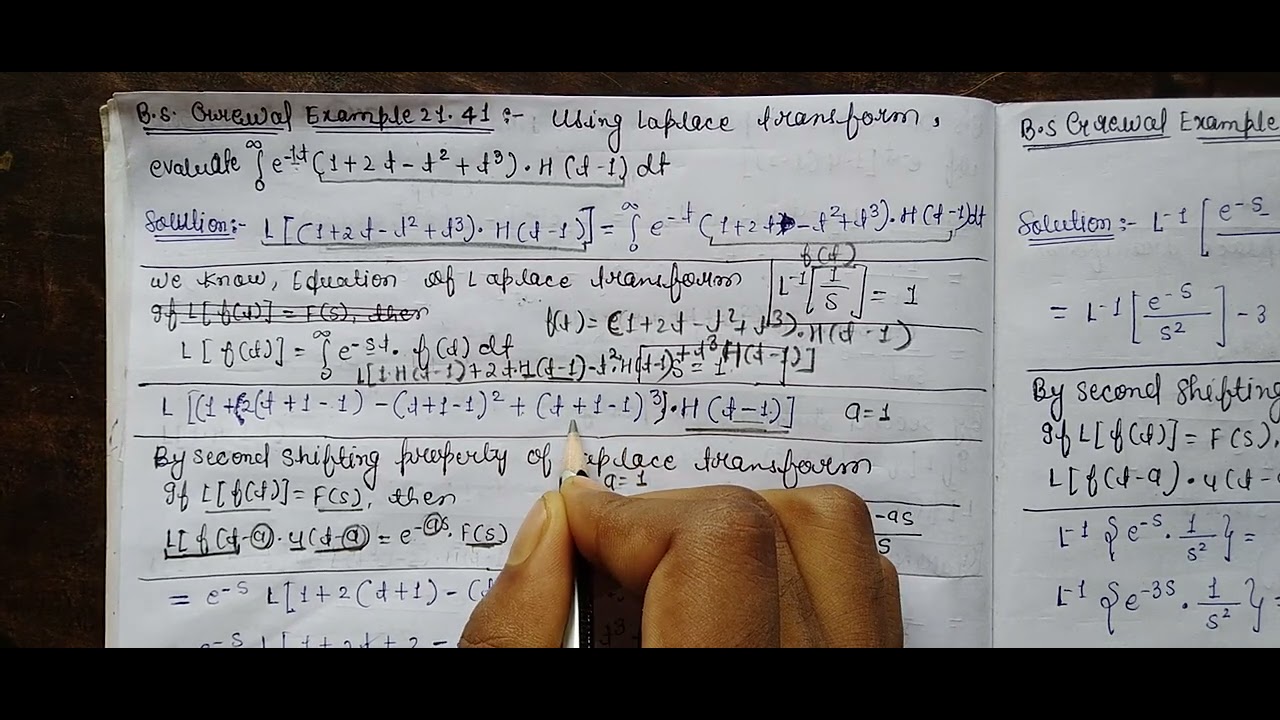 B.S. Grrewal Example 21.41 :- Using Laplace transform,
evaluate ∫₀^∞ e^-1t (1+2t-t²+t³)·H(t-1) dt
Solution:- L[(1+2t-t²+t³)·H(t-1)] = ∫₀^∞ e^-t (1+2t-t²+t³)·H(t-1)dt
f(t)
We know, Equation of Laplace transform
L^-1[1/s] = 1
If L[f(t)] = F(s), then
f(t) = (1+2t-t²+t³)·H(t-1)
L[f(t)] = ∫₀^∞ e^-st · f(t) dt
L[1·H(t-1)+2t·H(t-1)-t²·H(t-1)+t³·H(t-1)]
s = 1
L[(1+2(t+1-1)-(t+1-1)²+(t+1-1)³]·H(t-1)] a=1
By second shifting property of Laplace transform
a=1
If L[f(t)] = F(s), then
-as
s
L[f(t-a)·u(t-a) = e^-as · F(s)
= e^-s L[1+2(t+1)-(
e^-s
t³
B.S Grrewal Example
Solution:- L^-1[e^-s
= L^-1[e^-s/s²] - 3
By second shifting
If L[f(t)] = F(s),
L[f(t-a)·u(t-
L^-1{e^-s · 1/s²} =
L^-1{e^-3s · 1/s²} =